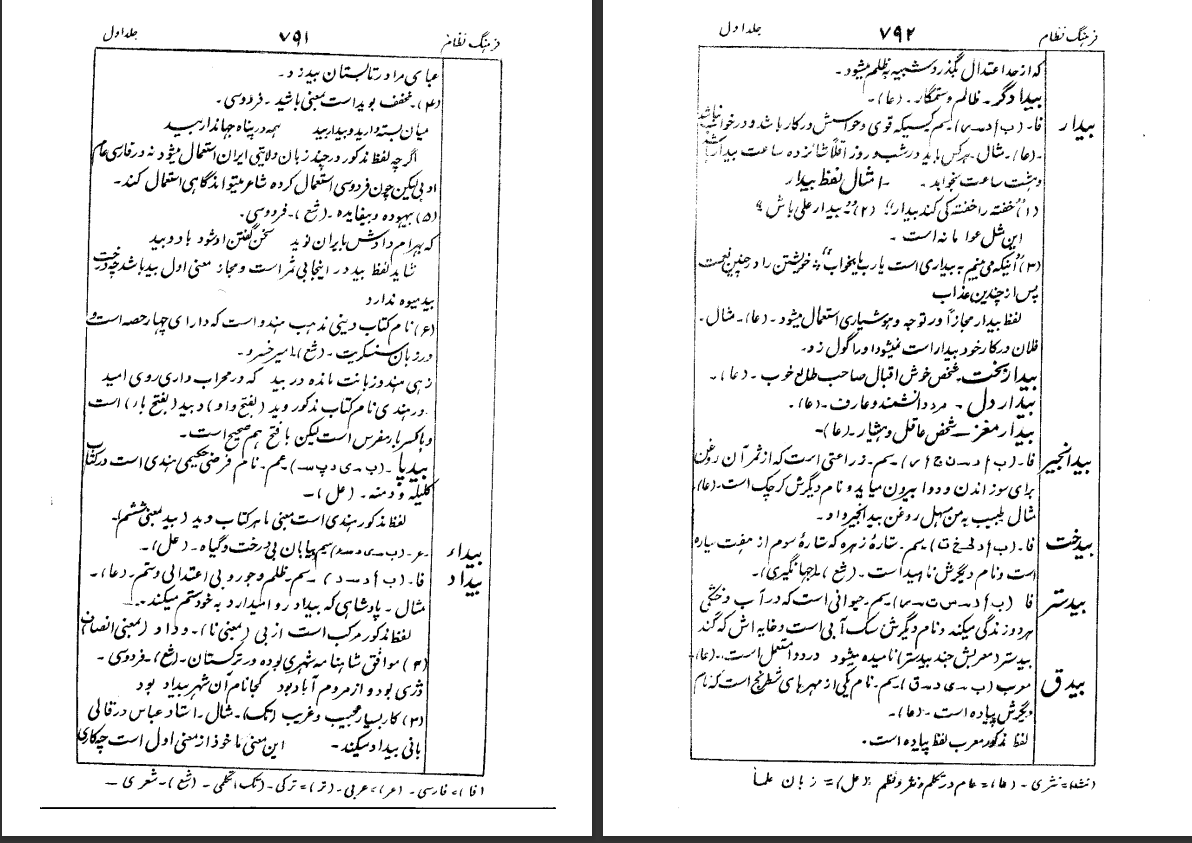 فرهنگ نظام ۷۹۱ جلد اول
عبا سی مرا در تابستان بید زد۔
(۴)۔ مخفف بوید است بمعنی باشید ۔ فردوسی۔
میان بسته دارید و بیدار بید همه در پناه جهاندار بید
اگر چه لفظ مذکور در چند زبان ولایتی ایران استعمال میشود نه در فارسی عام
ادبی لیکن چون فردوسی استعمال کرده شاعر میتواند گاهی استعمال کند۔
(۵) بیهوده و بیفایده ۔ (شع)۔ فردوسی۔
که بهرام دادش بایران نوید سخن گفتن او شود باد و بید
شاید لفظ بید در اینجا بی ثمر است و مجاز معنی اول بید باشد چه درخت
بید میوه ندارد
(۶) نام کتاب دینی مذهب هندو است که دارای چهار حصه است و
در زبان سنسکریت ۔ (شع)۔ امیر خسرو۔
زهی هندو زبانت مانده در بید که در محراب داری روی امید
در هندی نام کتاب مذکور وید (بفتح واو) و بید (بفتح با) است
و با کسر با مفرس است لیکن با فتح هم صحیح است۔
بیدپا ۔ (ب ی د پ ا)۔ عم۔ نام فرضی حکیمی هندی است در کتاب
کلیله و دمنه ۔ (عل)۔
لفظ مذکور هندی است بمعنی ماهر کتاب وید (بید بمعنی ششم)۔
بیداء عر۔ اسم بیابان بی درخت و گیاه ۔ (عل)۔
بیداد فا۔ (ب أ د ا د) اسم۔ ظلم و جور و بی اعتدالی و ستم۔ (عا)۔
مثال ۔ پادشاهی که بیداد روا میدارد به خود ستم میکند۔
لفظ مذکور مرکب است از بی (بمعنی نا)۔ و داد (بمعنی انصاف)
(۲) موافق شاهنامه شهری بوده در ترکستان۔ (شع)۔ فردوسی ۔
دژی بود و از مردم آباد بود کجا نام آن شهر بیداد بود
(۳) کار بسیار عجیب و غریب (تک)۔ مثال۔ استاد عباس در قالی
بافی بیداد میکند۔ این معنی ماخوذ از معنی اول است چه کاری
(فا)= فارسی۔ (عر)= عربی۔ (تر)= ترکی۔ (تک) تکلمی ۔ (شع)۔ شعری ۔
فرهنگ نظام ۷۹۲ جلد اول
که از حد اعتدال بگذرد شبیه بظلم میشود۔
بیدادگر ۔ ظالم و ستمگار۔ (عا)۔
بیدار فا۔ (ب أ د ا ر) اسم کسیکه قوی و حواسش در کار باشد و در خواب نباشد
۔(عا)۔ مثال۔ هر کس باید در شب و روز اقلاً شانزده ساعت بیدار باشد
و هشت ساعت بخوابد ۔ ۔امثال لفظ بیدار
(۱) "خفته را خفته کی کند بیدار" (۲) "بیدار علی باش"
این مثل عوامانه است ۔
(۳) "اینکه می بینم به بیداری است یارب یا بخواب" خویشتن را در چنین نعمت
پس از چندین عذاب
لفظ بیدار مجازاً در توجه و هوشیاری استعمال میشود ۔ (عا)۔ مثال۔
فلان در کار خود بیدار است نمیشود او را گول زد۔
بیدار بخت۔ شخص خوش اقبال صاحب طالع خوب ۔ (عا)۔
بیدار دل ۔ مرد دانشمند و عارف ۔ (عا)۔
بیدار مغز ۔ شخص عاقل و هشیار ۔ (عا)۔
بیدانجیر فا۔ اسم۔ زراعتی است که از ثمر آن روغن
برای سوزاندن و دوا بیرون میاید و نام دیگرش کرچک است۔ (عا)
مثال طبیب به من مسهل روغن بیدانجیر داد۔
بیدخت فا۔ (ب أ د خ ت) اسم۔ ستارهٔ زهره که ستارهٔ سوم از هفت سیاره
است و نام دیگرش ناهید است ۔ (شع) (جهانگیری)۔
بیدستر فا (ب أ د س ت ر) اسم۔ حیوانی است که در آب و خشکی
هر دو زندگی میکند و نام دیگرش سگ آبی است و خایه اش که گند
بیدستر (معربش جند بیدستر) نامیده میشود در دوا مستعمل است۔ (عا)۔
بیدق معرب (ب ی د ق) اسم۔ نام یکی از مهرهای شطرنج است که نام
دیگرش پیاده است ۔ (عا)۔
لفظ مذکور معرب لفظ پیاده است۔
(نث)= نثری ۔ (عا)= عام در تکلم و نثر و نظم (عل)= زبان علما